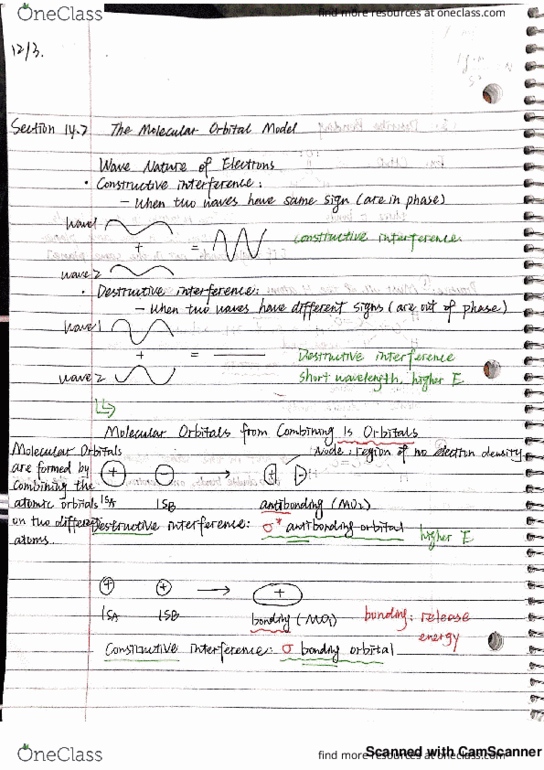 OneClass
find more resources at oneclass.com
12/3.
Section 14.7 The Molecular Orbital Model
Wave Nature of Electrons
• Constructive interference:
– When two waves have same sign (are in phase)
Wave 1
+ =
constructive interference
wave 2
• Destructive interference:
– When two waves have different signs (are out of phase)
Wave 1
+ =
Destructive interference
wave 2
short wavelength, higher E
Molecular Orbitals from Combining 1s Orbitals
Node: region of no electron density
Molecular Orbitals
are formed by
combining the
atomic orbitals
on two different
atoms.
+ – + –
1SA 1SB antibonding (MO2)
Destructive interference: σ* antibonding orbital higher E
+ + +
1SA 1SB bonding (MO1) bonding: release
energy
Constructive interference: σ bonding orbital
OneClass
find more resources at oneclass.com
Scanned with CamScanner